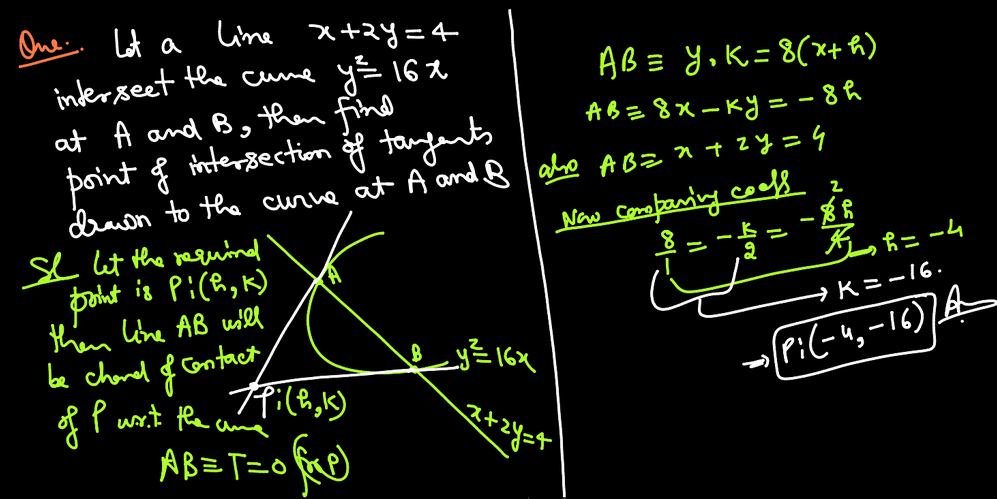 Que. Let a line x+2y=4
interseet the curve y²=16x
at A and B, then find
point of intersection of tangents
drawn to the curve at A and B
Sol Let the required
point is Pi(h,k)
then line AB will
be chord of contact
of P w.r.t the curve
AB≡T=0 (for P)
A
B
y²=16x
Pi(h,k)
x+2y=4
AB ≡ y.k = 8(x+h)
AB ≡ 8x-ky = -8h
also AB≡ x + 2y = 4
Now comparing coeff
8/1 = -k/2 = -8h/4 2 1 → h=-4
→ k=-16.
→ Pi(-4,-16) A